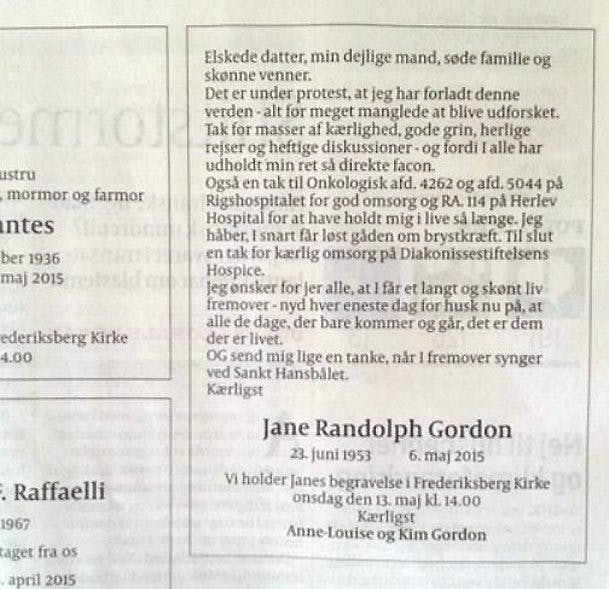 ustru
, mormor og farmor
antes
ber 1936
maj 2015
ederiksberg Kirke
4.00
f. Raffaelli
1967
taget fra os
. april 2015
Elskede datter, min dejlige mand, søde familie og
skønne venner.
Det er under protest, at jeg har forladt denne
verden - alt for meget manglede at blive udforsket.
Tak for masser af kærlighed, gode grin, herlige
rejser og heftige diskussioner - og fordi I alle har
udholdt min ret så direkte facon.
Også en tak til Onkologisk afd. 4262 og afd. 5044 på
Rigshospitalet for god omsorg og RA. 114 på Herlev
Hospital for at have holdt mig i live så længe. Jeg
håber, I snart får løst gåden om brystkræft. Til slut
en tak for kærlig omsorg på Diakonissestiftelsens
Hospice.
Jeg ønsker for jer alle, at I får et langt og skønt liv
fremover - nyd hver eneste dag for husk nu på, at
alle de dage, der bare kommer og går, det er dem
der er livet.
OG send mig lige en tanke, når I fremover synger
ved Sankt Hansbålet.
Kærligst
Jane Randolph Gordon
23. juni 1953 6. maj 2015
Vi holder Janes begravelse i Frederiksberg Kirke
onsdag den 13. maj kl. 14.00
Kærligst
Anne-Louise og Kim Gordon